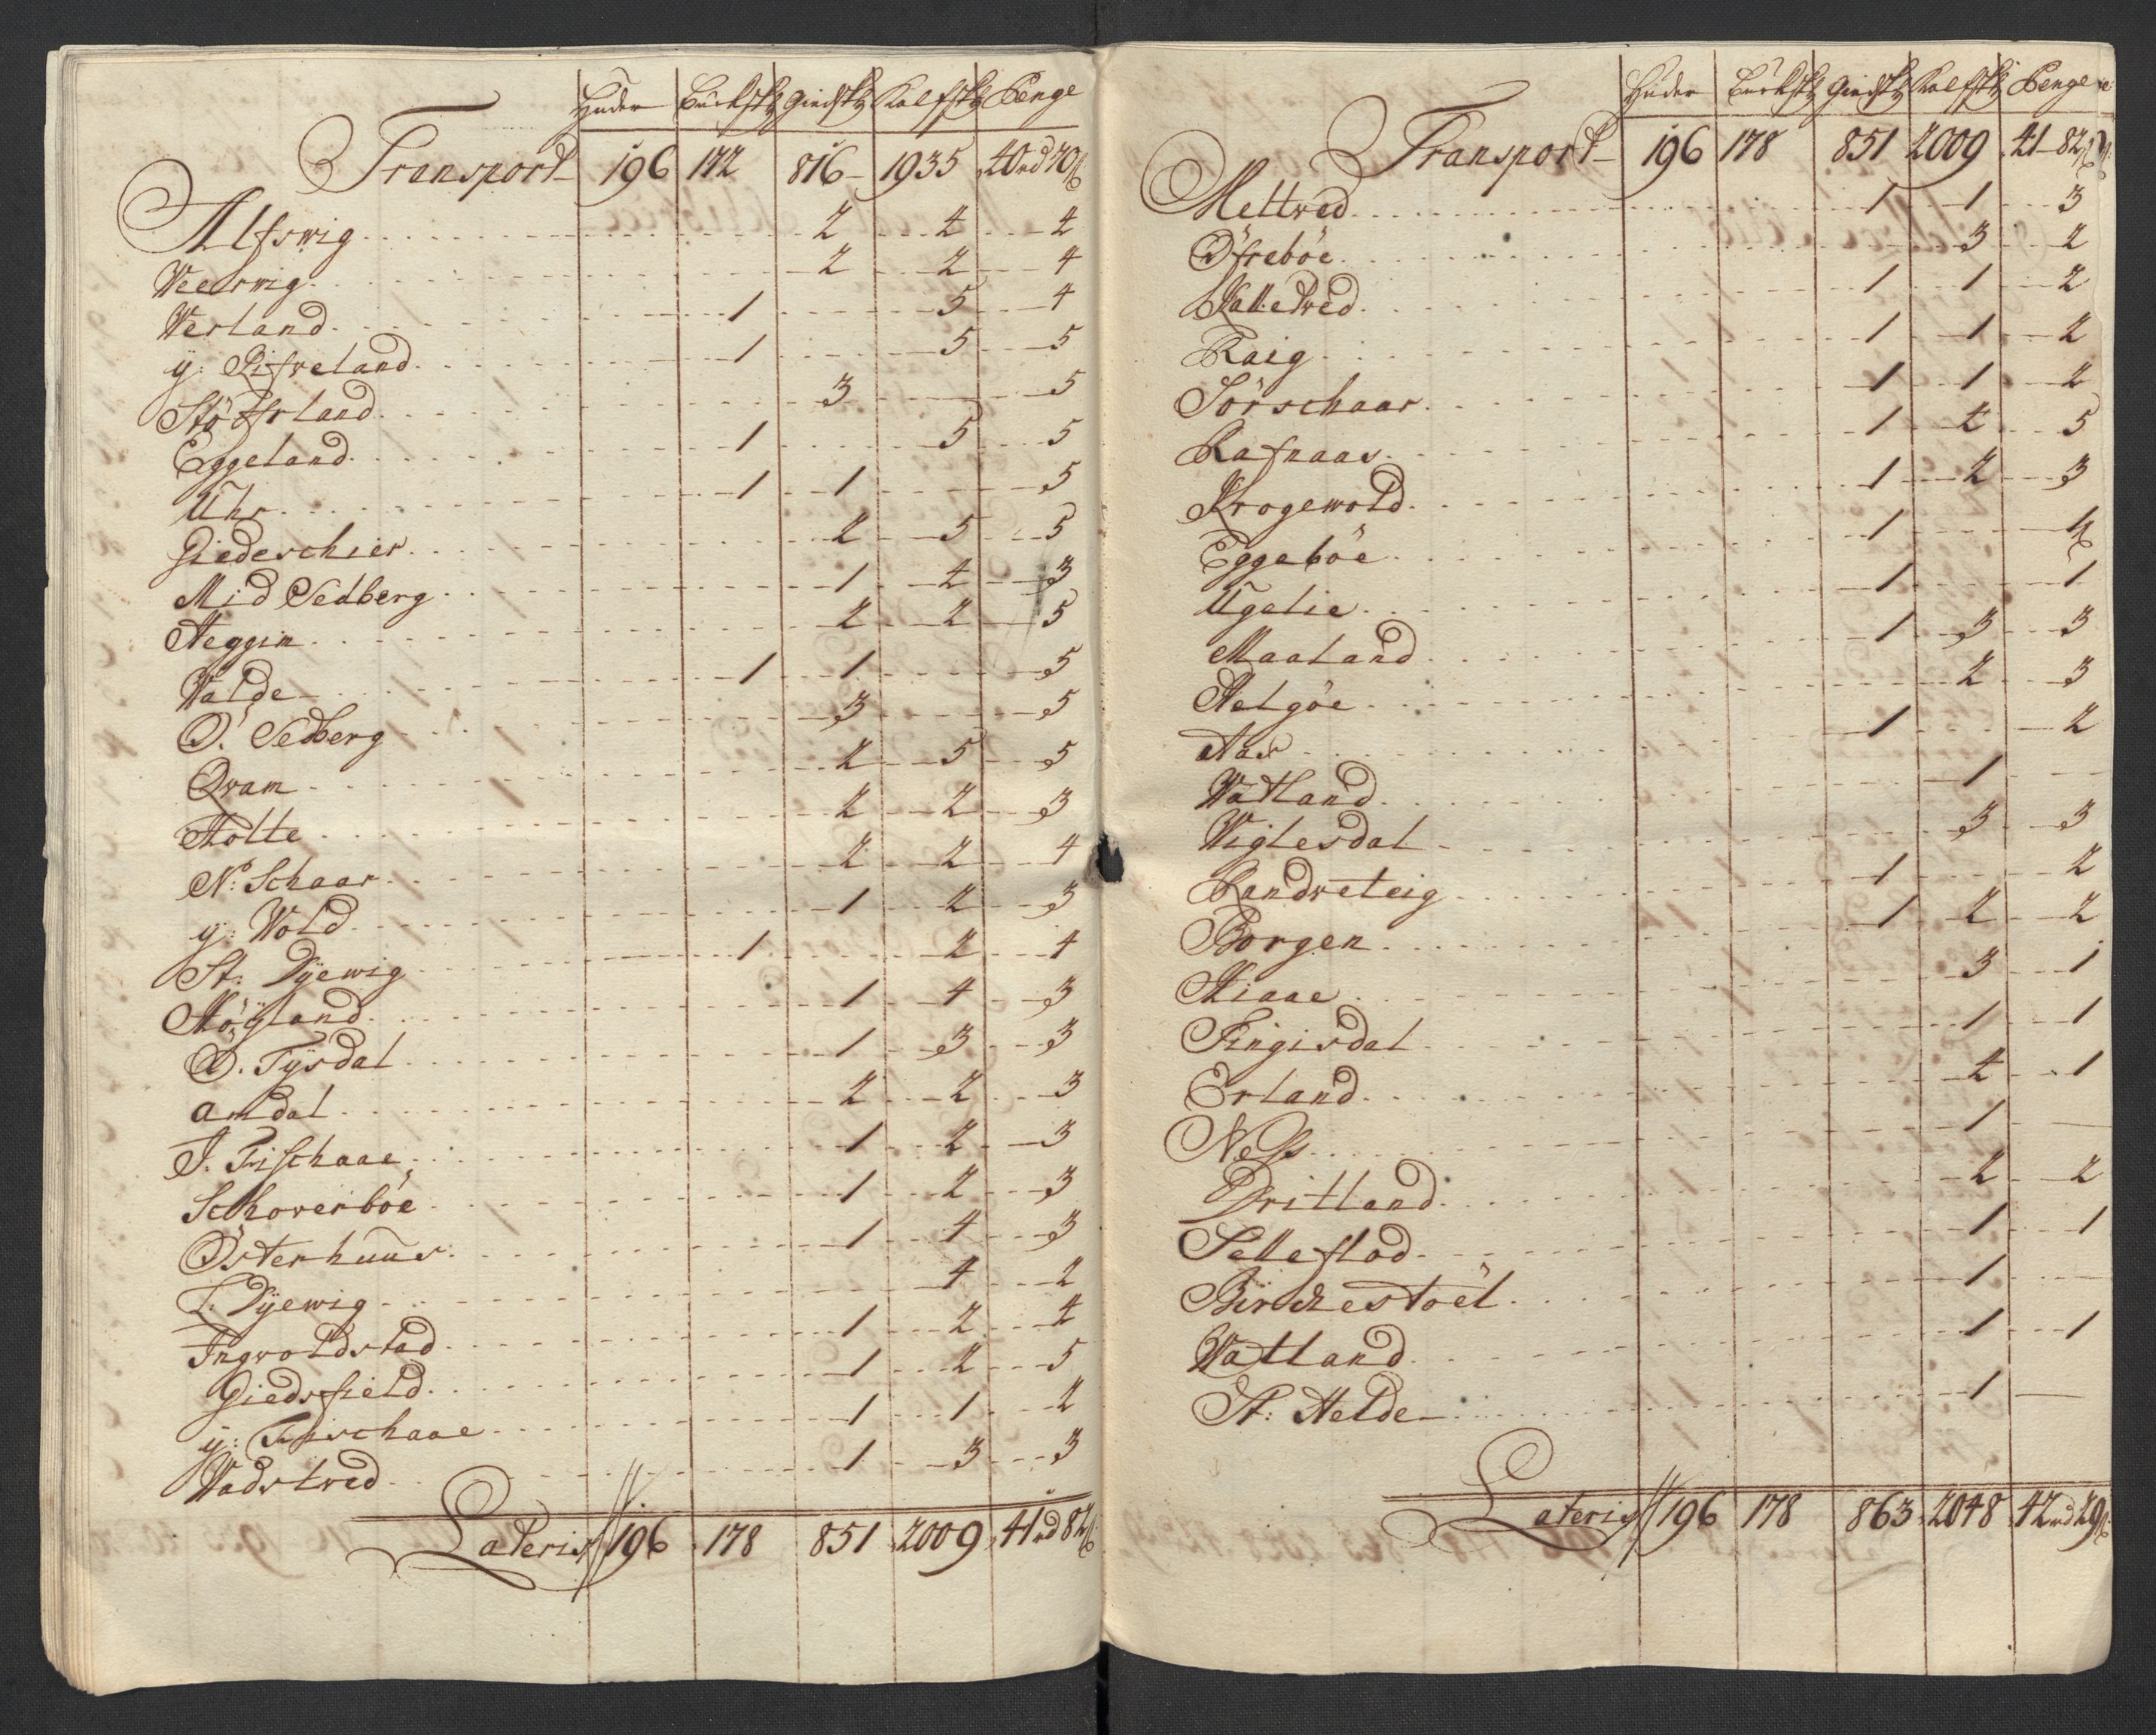 Huder Buckskd Giedskd Kalfskd Penge
Transport 196 172 816 1935 40rd 70ß
Alfswig 2 4 4
Weeswig 2 2 4
Werland 1 5 4
ÿ: Rifveland 1 5 5
Stöfrland 3 5
Eggeland 1 5 5
Uhr 1 1 5
Giedeschier 2 5 5
Mid Sedberg 1 4 3
Heggim 2 2 5
Walde 1 1 5
Ö. Sedberg 3 5
Qvam 2 5 5
Holte 2 2 3
N: Schaar 2 2 4
ÿ: Wold 1 2 3
St: Dÿewig 1 2 4
Högland 1 4 3
Ö. Tÿsdal 1 3 3
Amdal 2 2 3
I. Trischaae 1 2 3
Schoverböe 1 2 3
Österhuus 1 4 3
L: Dÿewig 4 2
Ingvoldstad 1 2 4
Giedsfield 1 2 5
ÿ: Trischaae 1 1 2
Wadstved 1 3 3
Lateris 196 178 851 2009 41rd 82ß

Huder Buckskd Giedskd Kalfskd Penge
Transport 196 178 851 2009 41 82ß
Meltved 1 1 3
Öfreböe 3 2
Kalletved 1 1 2
Raig 1 1 2
Sörschaar 1 1 2
Rafnaas 1 4 5
Krogewold 1 2 3
Eggeböe 1 4
Ugelie 1 1
Maaland 1 3 3
Helgöe 2 3
Aas 1 2
Watland 1
Viglesdal 3 3
Randveteig 1 2
Borgen 1 2 2
Kiaae 3 1
Fingisdal 1 1
Erland 4 1
Neß 1
Dritland 2 2
Sellestad 1 1
Birchestöel 1
Watland 1 1
St: Helde 1
Lateris 196 178 863 2048 42rd 29ß